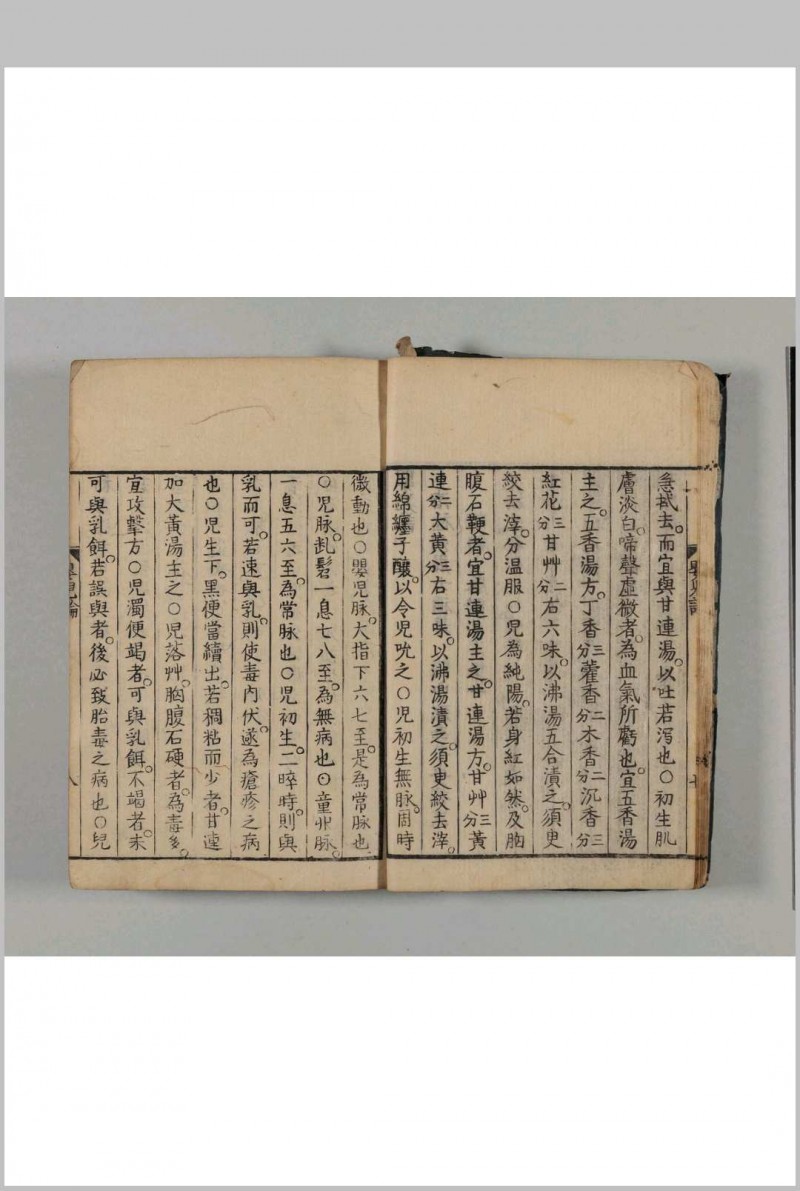 急拭去。而宜與甘連湯。以吐若泻也〇初生肌
膚淡白。啼聲虛微者。為血氣所虧也。宜五香湯
主之。五香湯方。丁香三分藿香二分木香二分沉香三分
紅花三分甘艸二分右六味。以沸湯五合漬之。須臾
絞去滓。分温服〇児為純陽。若身紅如然。及胸
腹石鞕者。宜甘連湯主之。甘連湯方。甘艸三分黃
連二分大黃三分右三味。以沸湯漬之。須臾絞去滓。
用綿纏子釀。以令児吮之〇児初生無脉。周時
微動也〇嬰児脉。大指下六七至。是為常脉也
〇児脉。齔髫一息七八至。為無病也〇童丱脉。
一息五六至。為常脉也〇児初生。二晬時。則與
乳而可。若速與乳。則使毒內伏。遂為瘡疹之病
也〇児生下。黑便當續出。若稠粘而少者。甘連
加大黃湯主之〇児落艸。胸腹石硬者。為毒多。
宜攻擊方〇児濁便竭者。可與乳餌。不竭者。未
可與乳餌。若誤與者。後必致胎毒之病也〇兒